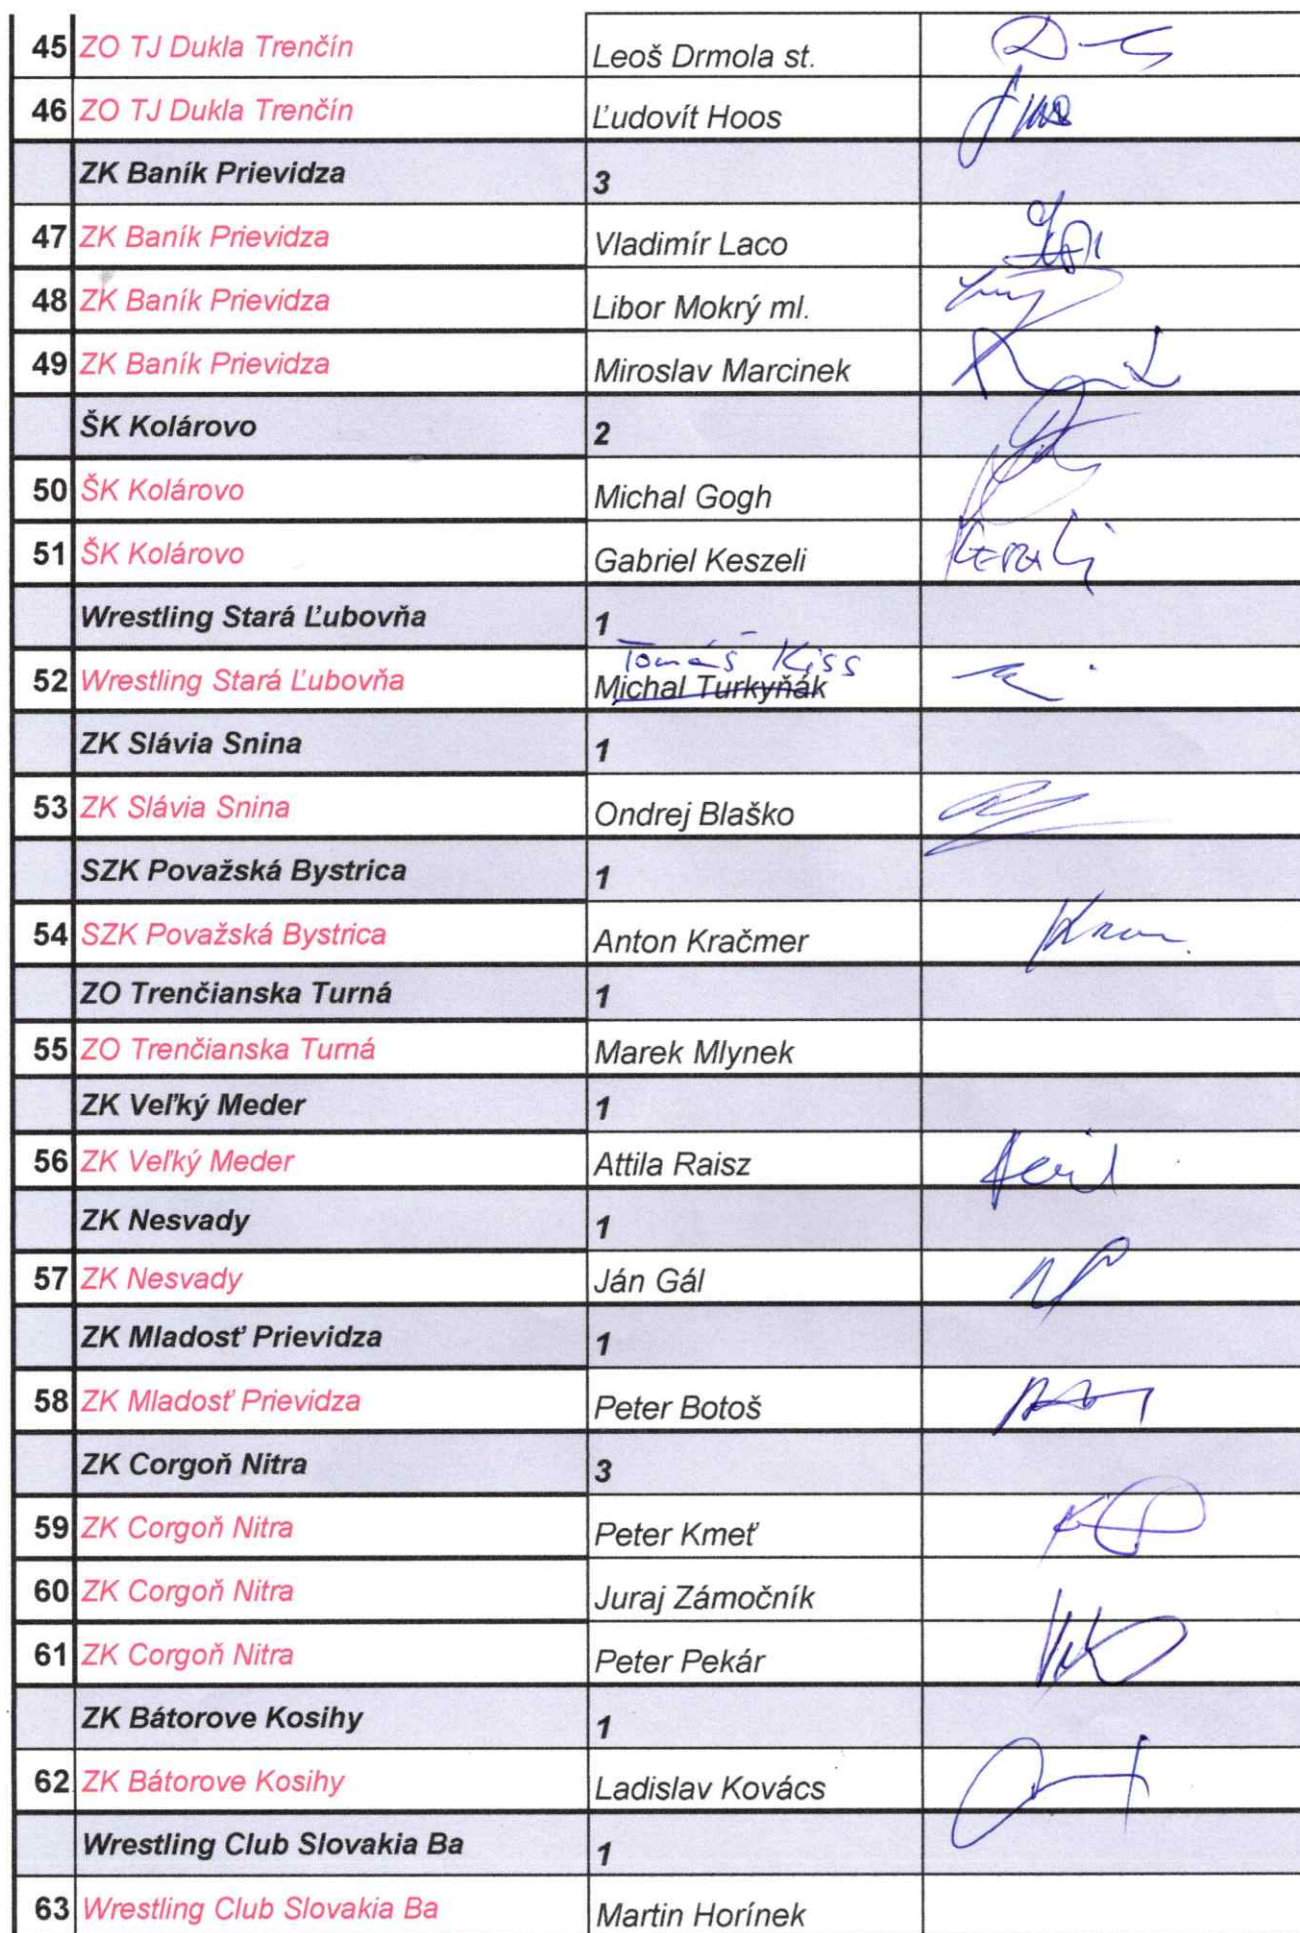 45 ZO TJ Dukla Trenčín Leoš Drmola st.
46 ZO TJ Dukla Trenčín Ľudovít Hoos
ZK Baník Prievidza 3
47 ZK Baník Prievidza Vladimír Laco
48 ZK Baník Prievidza Libor Mokrý ml.
49 ZK Baník Prievidza Miroslav Marcinek
ŠK Kolárovo 2
50 ŠK Kolárovo Michal Gogh
51 ŠK Kolárovo Gabriel Keszeli
Wrestling Stará Ľubovňa 1
Tomáš Kiss
52 Wrestling Stará Ľubovňa Michal Turkyňák
ZK Slávia Snina 1
53 ZK Slávia Snina Ondrej Blaško
SZK Považská Bystrica 1
54 SZK Považská Bystrica Anton Kračmer
ZO Trenčianska Turná 1
55 ZO Trenčianska Turná Marek Mlynek
ZK Veľký Meder 1
56 ZK Veľký Meder Attila Raisz
ZK Nesvady 1
57 ZK Nesvady Ján Gál
ZK Mladosť Prievidza 1
58 ZK Mladosť Prievidza Peter Botoš
ZK Corgoň Nitra 3
59 ZK Corgoň Nitra Peter Kmeť
60 ZK Corgoň Nitra Juraj Zámočník
61 ZK Corgoň Nitra Peter Pekár
ZK Bátorove Kosihy 1
62 ZK Bátorove Kosihy Ladislav Kovács
Wrestling Club Slovakia Ba 1
63 Wrestling Club Slovakia Ba Martin Horínek